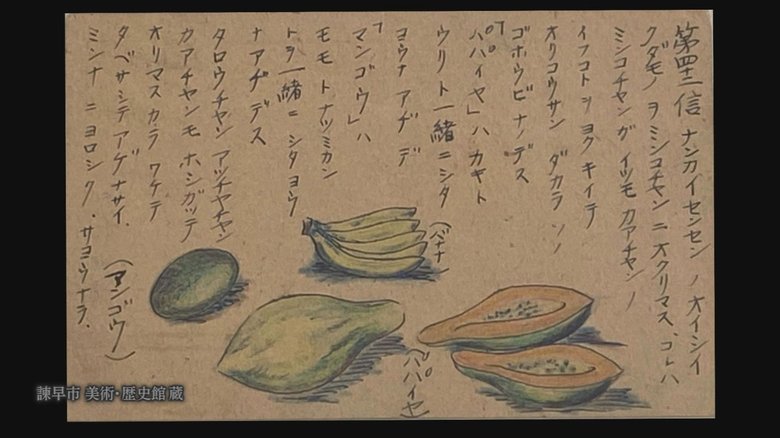 第四十二信、ナンカイセンセン ノ オイシイ
クダモノ ヲ ミンコチヤン ニ オクリマス、コレハ
ミンコチヤンガ イツモ カアチヤンノ
イフコト ヲ ヨク キイテ
オリコウサン ダカラ ソノ
ゴホウビ ナノデス
「パパイヤ」ハ カキト
ウリト 一緒ニ シタ
ヨウナ アヂ デ
「マンゴウ」ハ
モモ ト ナツミカン
トヲ 一緒ニ シタヨウ
ナアヂ デス
タロウチヤン アツチヤチヤン
カアチヤンモ ホシガツテ
オリマス カラ ワケテ
タベサシテアゲナサイ.
ミンナ ニ ヨロシク.サヨウナラ.
(バナナ)
(パパイヤ)
(マンゴウ)
諫早市 美術・歴史館 蔵